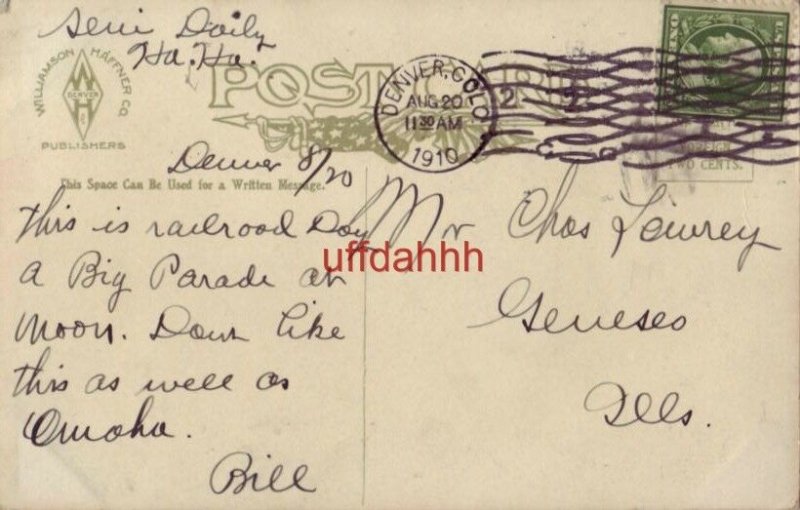 Semi Daily
Ha. Ha.
WILLIAMSON HAFFNER CO.
DENVER
PUBLISHERS
POST CARD
DENVER, COLO.
AUG 20
11 30 AM
1910
2
TWO CENTS.
Denver 8/20
This Space Can Be Used for a Written Message.
This is railroad Day
a Big Parade at
noon. Dont like
this as well as
Omaha.
Bill
Mr Chas Lowrey
Geneseo
Ills.
uffdahhh